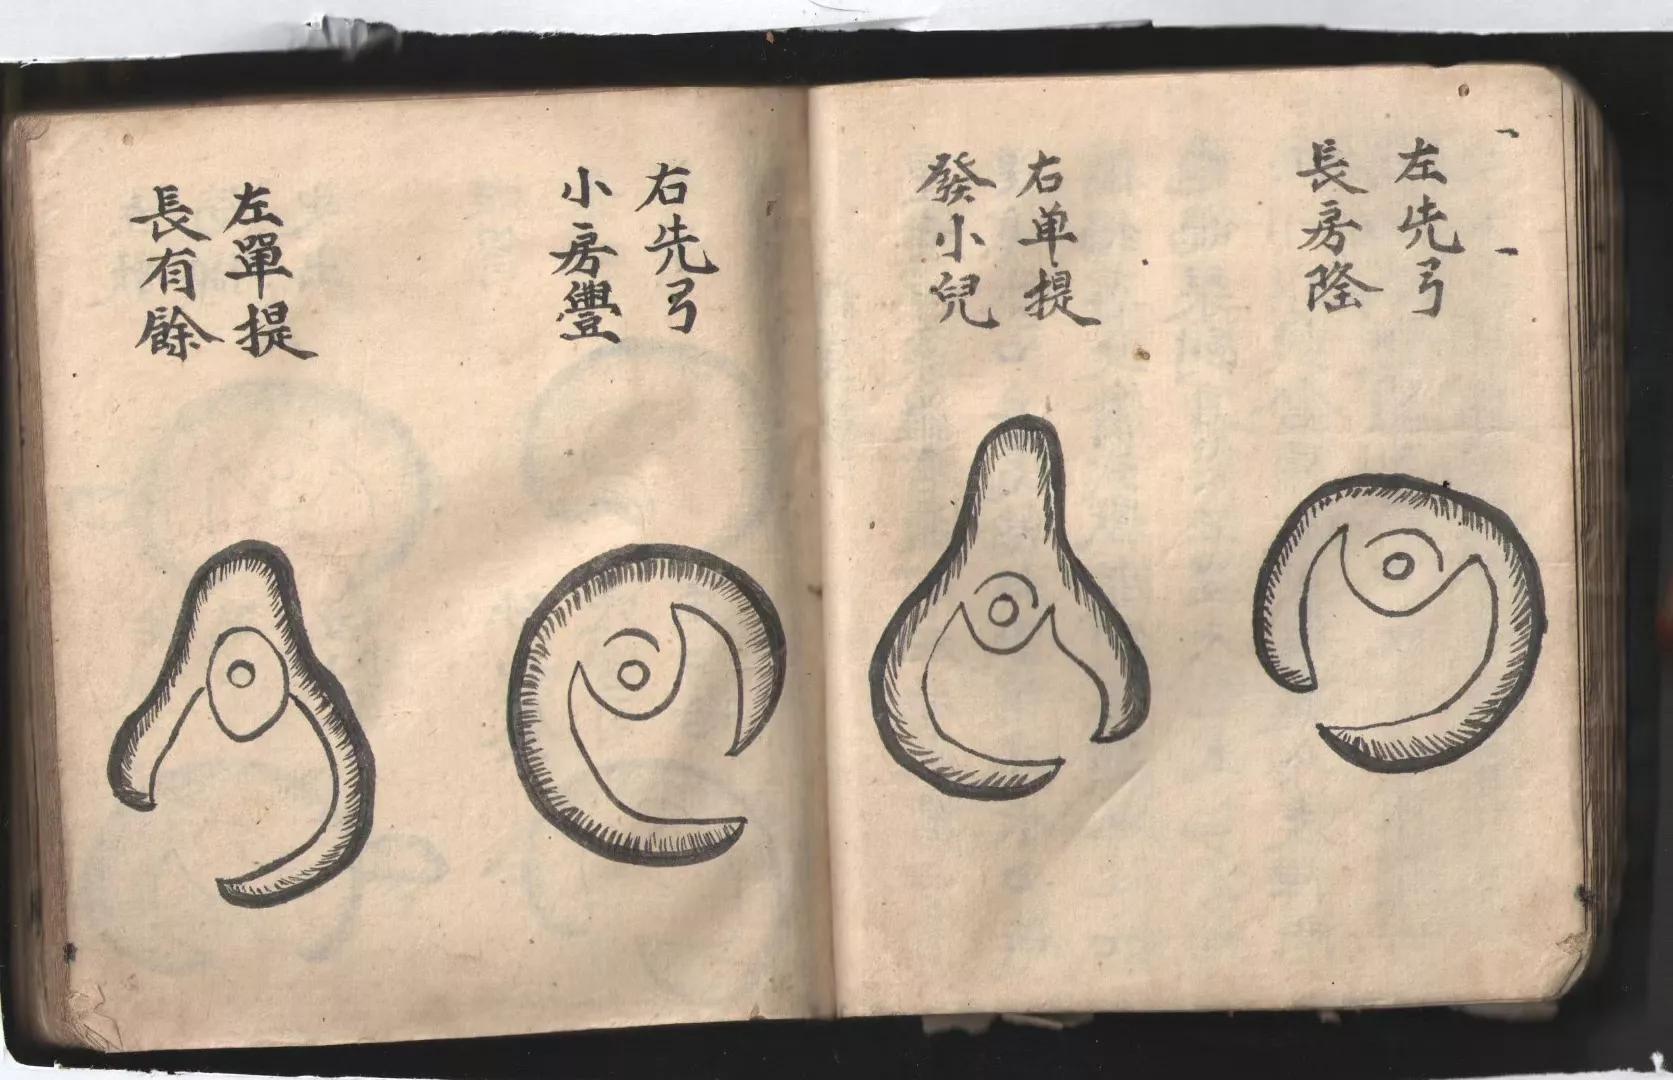 左先弓
長房隆
右单提
發小兒
右先弓
小房豐
左單提
長有餘